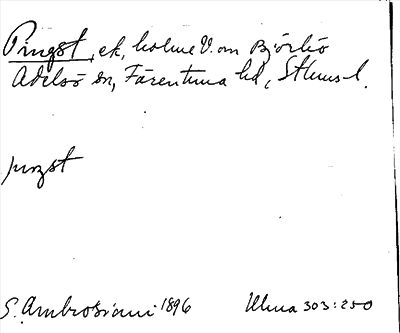 Pingst, ek, holme V. om Björkö
Adelsö sn, Färentuna hd, Sthms l.
pıŋst
S. Ambrosiani 1896 Ulma 303:250